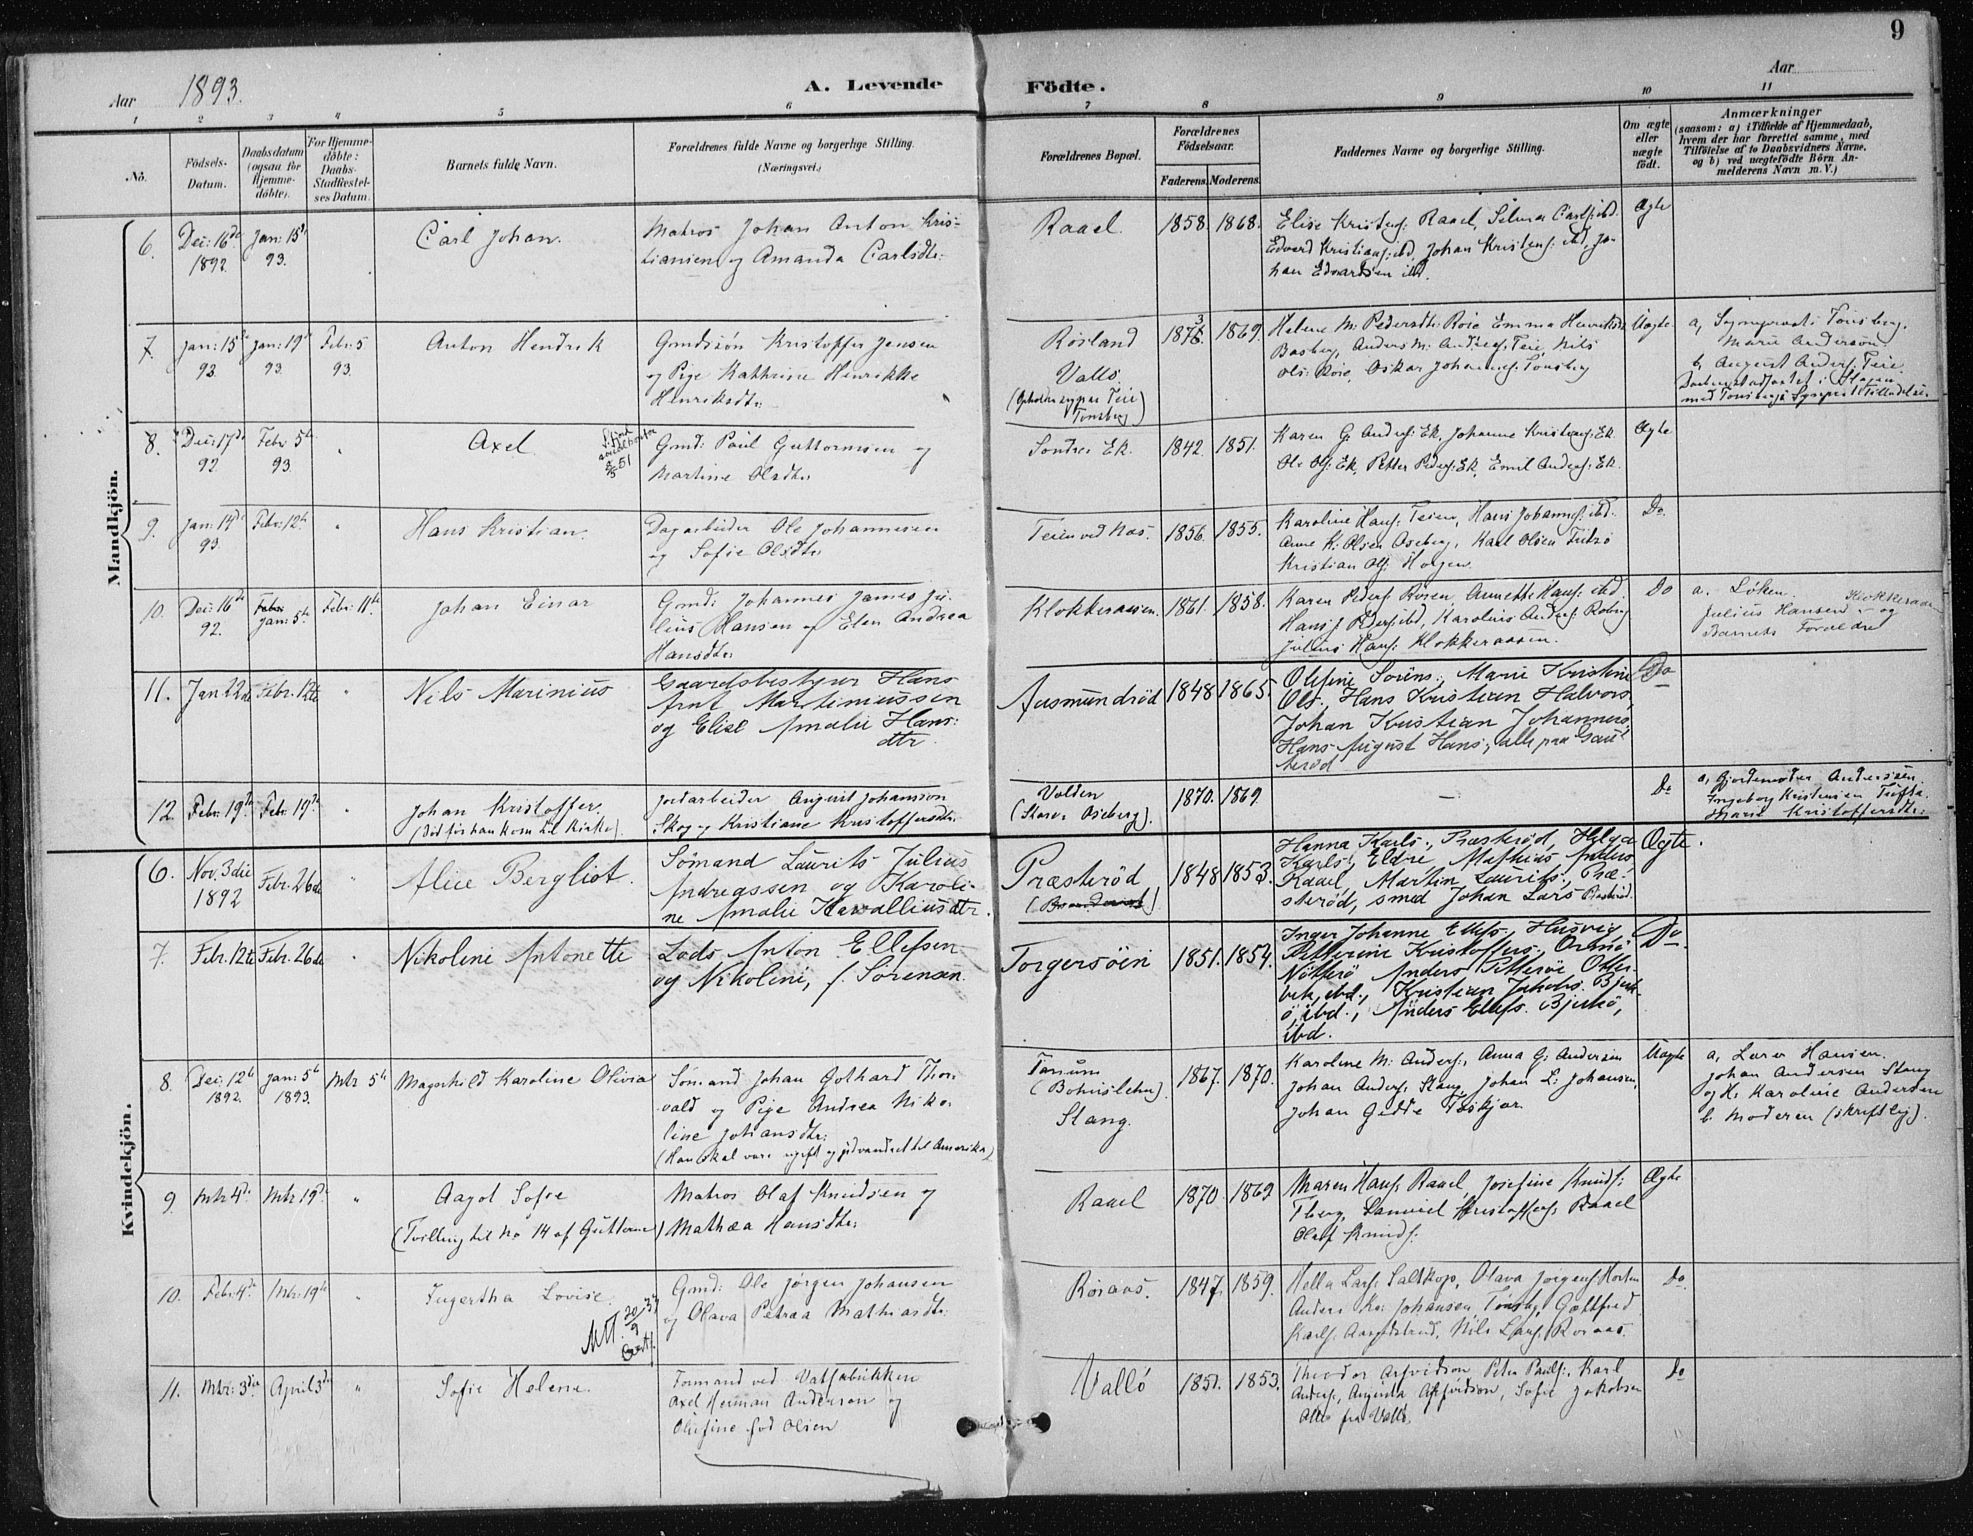 9
Aar 1893.
A. Levende Födte.
Aar
1 2 3 4 5 6 7 8 9 10 11
No.
Födsels-
Datum.
Daabsdatum
(ogsaa for
Hjemme-
döbte).
For Hjemme-
döbte:
Daabs-
Stadfæstel-
ses Datum.
Barnets fulde Navn.
Forældrenes fulde Navne og borgerlige Stilling.
(Næringsvei.)
Forældrenes Bopæl.
Forældrenes
Födselsaar.
Faderens. Moderens.
Faddernes Navne og borgerlige Stilling.
Om ægte
eller
uægte
födt.
Anmærkninger
(saasom: a) i Tilfælde af Hjemmedaab,
hvem der har forrettet samme, med
Tilföielse af to Daabsvidners Navne,
og b) ved uægtefödte Börn An-
melderens Navn m.V.)
Mandkjön.
6. Dec: 16de 1892. Jan: 15de 93.
Carl Johan.
Matros Johan Anton Kris-
tiansen og Amanda Carlsdtr:
Raael. 1858. 1868.
Elise Kristens: Raael, Selma Carls: ibd.
Edvard Kristians: ibd, Johan Kristens: ibd, Jo-
han Edvardsen ibd.
Ægte
7. Jan: 15de 93. Jan: 19de 93. Febr: 5 93.
Anton Hendrik
Gmdssön Kristoffer Jensen
og Pige Kathrine Henrikke
Henriksdtr:
Rösland
Vallö.
Tönsberg)
1873 1869.
Helene M: Pedersdtr: Roie Emma Henriksdtr
Basberg, Anders M: Anders: Teie, Nils
Ols: Roie, Oskar Johannes: Tönsberg
Uægte
a, Sogneprest Tönsberg.
Marie Anderson.
b, August Anders: Teie.
8. Dec: 17de 92 Febr 5te 93. "
Axel
Gmd: Paul Guttormsen og
Martine Olsdtr:
Söndre Ek. 1842. 1851.
Karen G: Anders: Ek, Johanne Kristens: Ek.
Ole Ols: Ek, Petter Peders: Ek, Emil Anders: Ek.
Ægte
9. Jan: 14de 93. Febr: 12te "
Hans Kristian.
Dagarbeider Ole Johannesen
og Sofie Olsdtr:
Teien ved Nös. 1856. 1855.
Karoline Hans: Teien, Hans Johannes: ibd.
Anne K: Olsen Oseberg, Karl Olsen
Kristian Ols: Hogsn.
Do.
10. Dec: 16de 92. Jan: 5te Febr: 11te
Johan Einar
Gmd: Johannes James Ju-
lius Hansen og Elen Andrea
Hansdtr:
Klokkeraasen. 1861. 1858.
Karen Peders: Rosen, Annette Hans: ibd.
Hans J Peders: ibd, Karolius Anders:
Julius Hans: Klokkeraasen.
Do
a. Löken.
Julius Hansen Klokkeraasen og
Barnets Forældre
11. Jan 22de Febr. 12te "
Nils Marinius
Gaardsbestyrer Hans
Arnt Martiniussen
og Elise Amalie Hans:
dtr.
Ausmundröd 1848 1865.
Olefine Sörens., Marie Kristine
Ols., Hans Kristian Halvors.,
Johan Kristian Johannes.,
Hans August Hans., alle paa Gau-
teröd
Do
12. Febr: 19de Febr: 19de "
Johan Kristoffer.
(Död för han kom til Kirke).
Jordarbeider August Johansson
Skog og Kristiane Kristoffersdtr:
Volden
(Store Oseberg). 1870. 1869.
—
Do
a, Gjordemoder Anderssen
Ingeborg Kristensen Tufte
Marie Kristoffersdtr:
Kvindekjön.
6. Nov. 3die 1892 Febr. 26de "
Alice Bergliot.
Sömand Laurits Julius
Andreassen og Karoli-
ne Amalie Kavalliusdtr.
Præsteröd 1848 1853.
Hanna Karls., Præsteröd, Helga
Karls., Eldre, Mathias Anders.
Raael, Martin Laurits., Præ-
steröd, smed Johan Lars Præsteröd.
Ægte.
7. Febr. 12te Febr. 26de "
Nikoline Antonette
Lods Anton Ellefsen
og Nikoline, f. Sörensen.
Torgersöen 1851. 1854.
Inger Johanne Ellefs., Husvig
Petterine Kristoffers., Ormö
Nötterö Anders Otter-
bek, ibd., Kristian Jakobs. Bjerk-
ö, ibd., Anders Ellefs. Bjerkö,
ibd.
Do.
8. Dec: 12te 1892. Jan: 5te 1893. Mtr 5te
Magnhild Karoline Olivia
Sömand Johan Gothard Thor-
vald og Pige Andrea Niko-
line Johansdtr:
(Han skal være ugift og udvandret til Amerika)
Tanum
(Bohuslehn).
Slang.
1867. 1870.
Karoline M: Anders:, Anna G: Andersen
Johan Anders: Slang, Johan L: Johansen,
Johan Gedde
Uægte
a, Lars Hansen.
Johan Andersen Slang
og K. Karoline Andersen
b, Moderen (skriftlig).
9 Mtr 4de Mtr 19de "
Aagot Sofie
(Tvilling til No 14 af Guttene)
Matros Olaf Knudsen og
Mathea Hansdtr:
Raael 1870 1869
Maren Hans: Raael, Josefine Knuds:
Tberg, Samuel Kristoffers: Raael
Olaf Knuds:
Ægte
10. Febr: 4de Mtr: 19de "
Ingertha Lovise.
Gmd: Ole Jörgen Johansen
og Olava Petrea Mathiasdtr:
Roraas. 1847. 1859.
Hella Lars: Saltkop, Olava Jörgens: Horten
Anders Kr: Johansen, Tönsbg, Gottfred
Karls: Nils Lars: Roraas.
Do.
11. Mtr: 3die April 3die "
Sofie Helene.
Formand ved Valfabrikken
Axel Herman Anderson og
Olefine Olsen
Vallö 1851. 1853.
Theodor Arfvidson, Peter Pauls:, Karl
Anders:, Augusta Arfvidson, Sofie Jakobsen
Alle fra Vallö.
Do